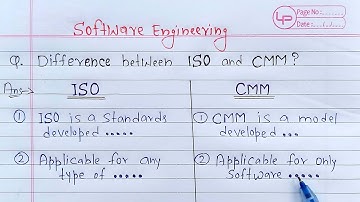 Software Engineering
LP
Page No:
Date: / /
Q. Difference between ISO and CMM?
Ans→ ISO CMM
① ISO is a standards
developed .....
① CMM is a model
developed ....
② Applicable for any
type of .....
② Applicable for only
software .....